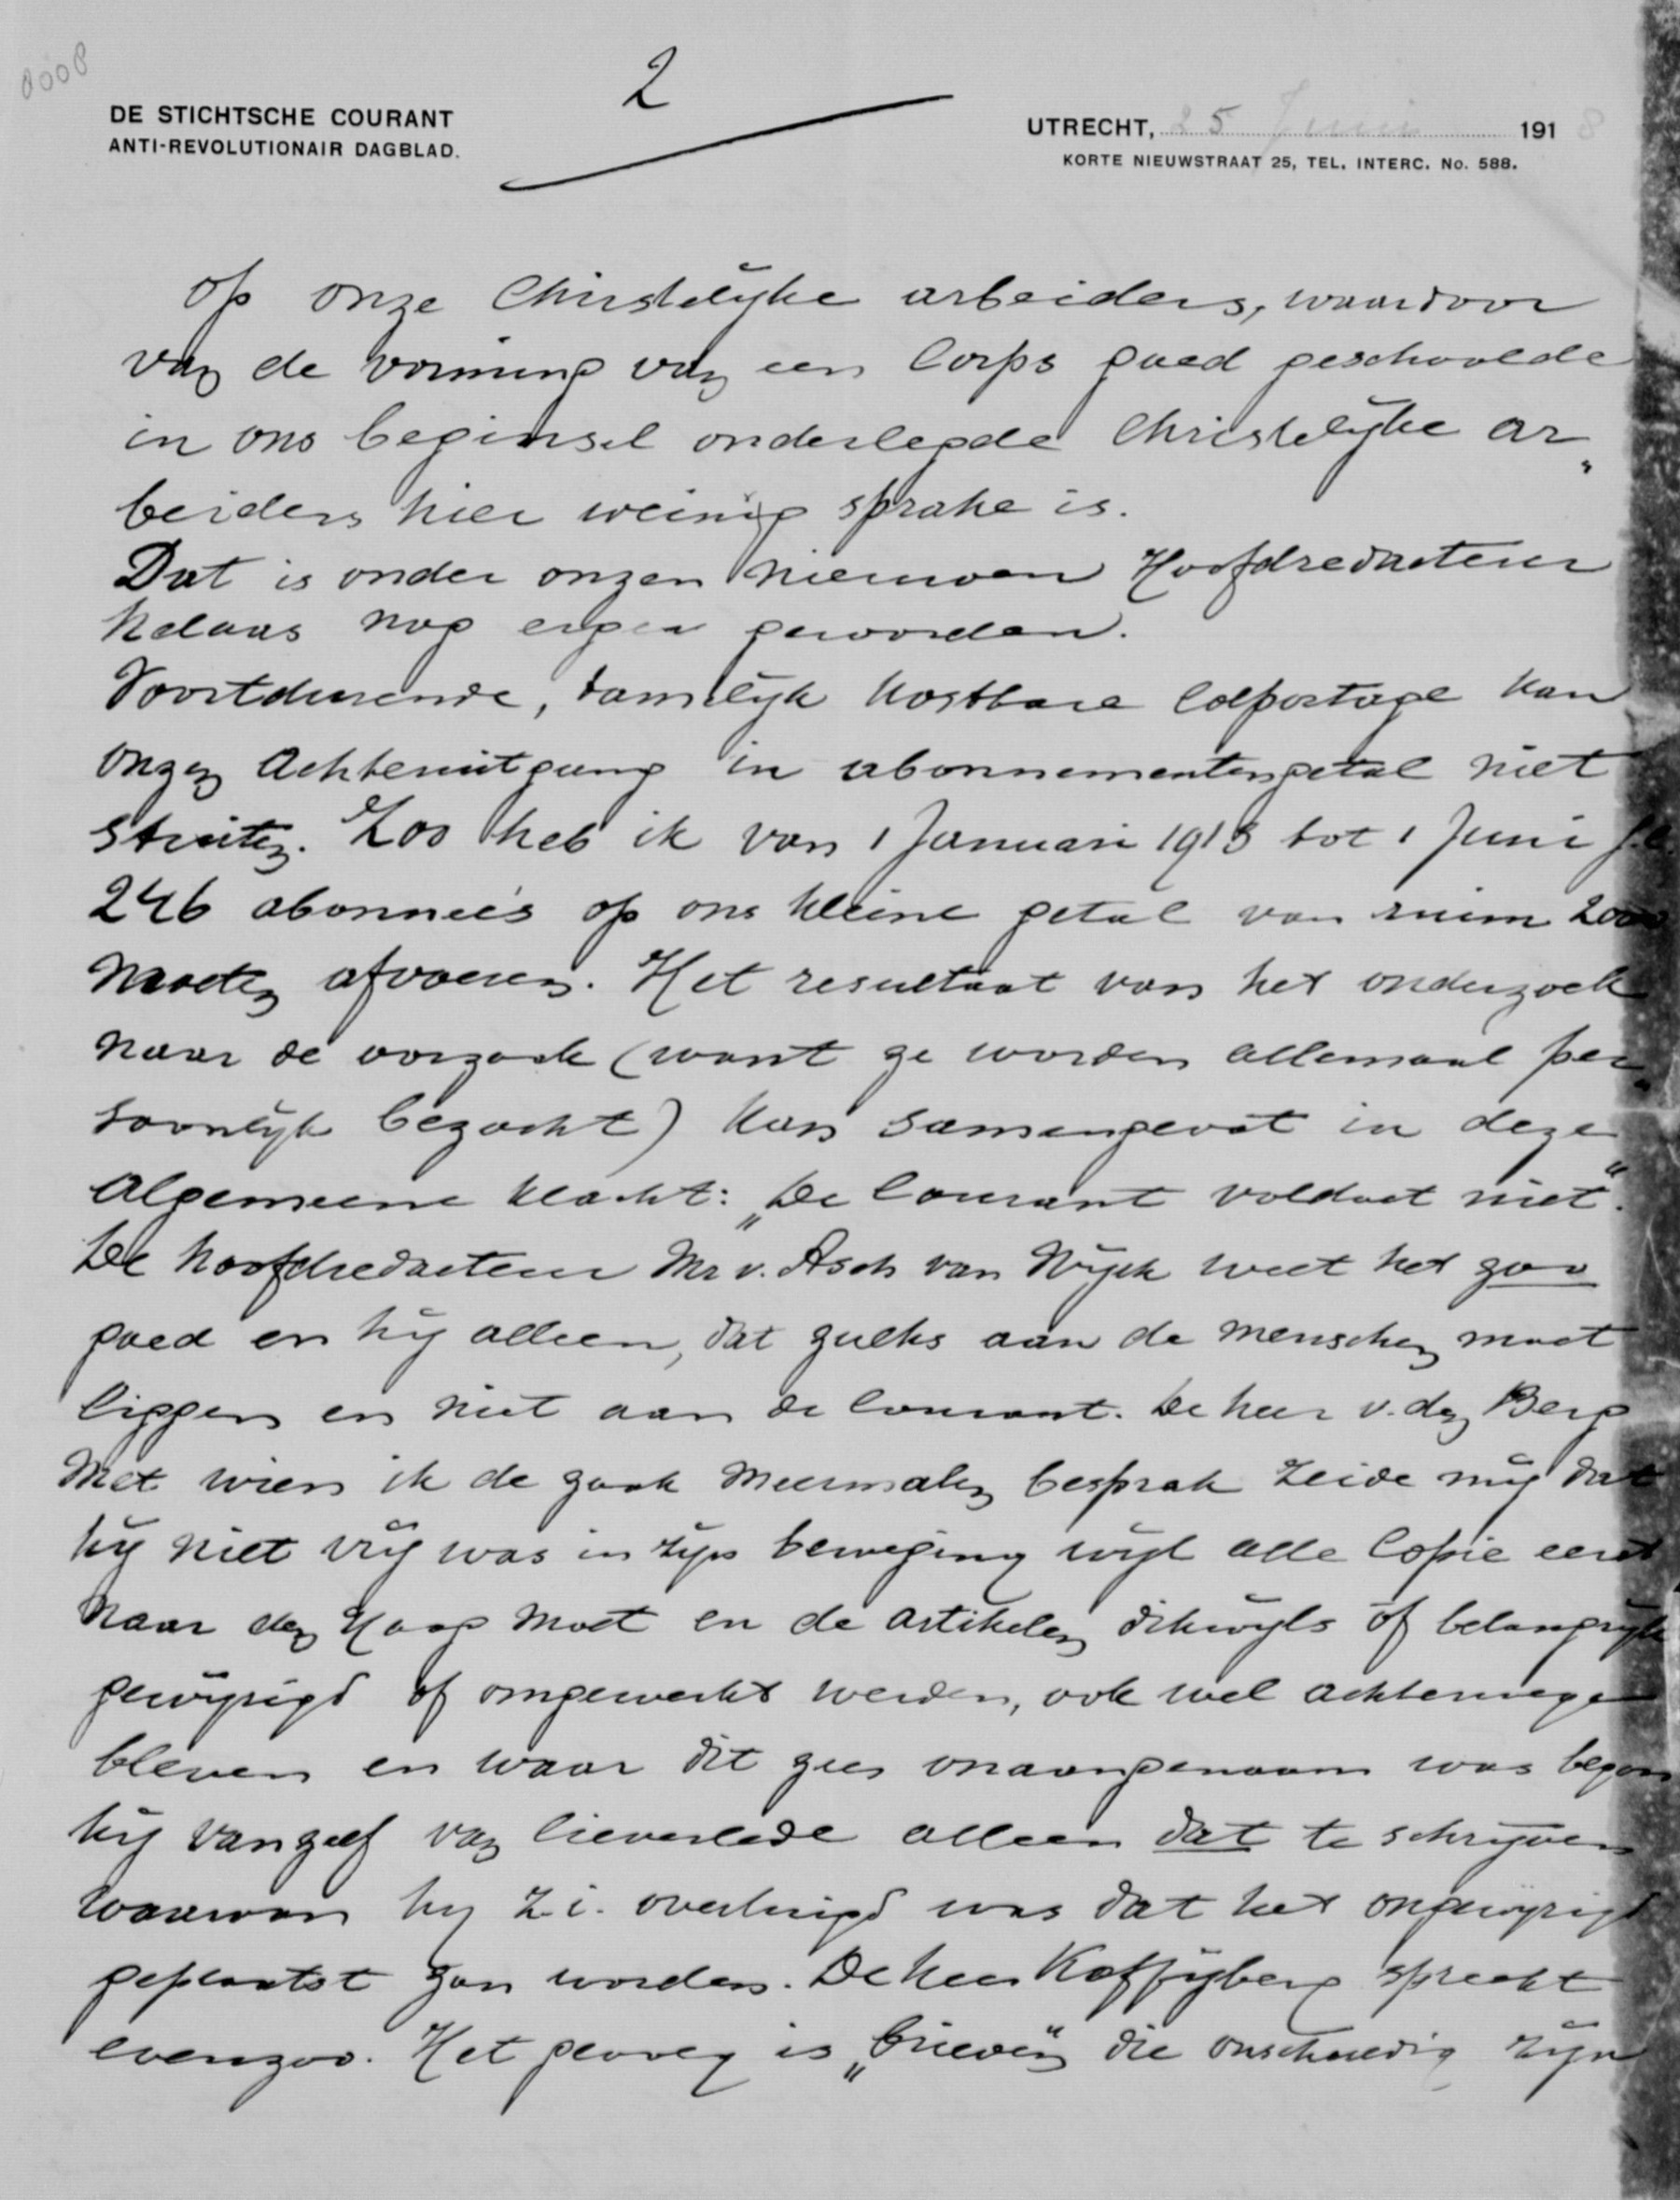 0008
2
DE STICHTSCHE COURANT
ANTI-REVOLUTIONAIR DAGBLAD.
UTRECHT, 25 Juni 1918
KORTE NIEUWSTRAAT 25, TEL. INTERC. No. 588.
op onze Christelijke arbeiders, waardoor
van de vorming van een Corps goed geschoolde
in ons beginsel onderlegde Christelijke ar„
beiders hier weinig sprake is.
Dat is onder onzen nieuwen Hoofdredacteur
helaas nog erger geworden.
Voortdurende, tamelijk kostbare Colportage kan
onzen Achteruitgang in abonnementengetal niet
stuiten. Zoo heb ik van 1 Januari 1918 tot 1 Juni j.l.
246 abonneé's op ons kleine getal van ruim 2000
moeten afvoeren. Het resultaat van het onderzoek
naar de oorzaak (want ze worden allemaal per„
soonlijk bezocht) kan samengevat in deze
Algemeene klacht: „De Courant voldoet niet".
De hoofdredacteur Mr v. Asch van Wijck weet het zoo
goed en hij alleen, dat zulks aan de menschen moet
liggen en niet aan de Courant. De heer v. den Berg
Met wien ik de zaak meermalen besprak zeide mij dat
hij niet vrij was in zijn beweging wijl alle Copie eerst
naar den Haag moet en de artikelen dikwijls òf belangrijk
gewijzigd of omgewerkt werden, ook wel achterwege
bleven en waar dit zeer onaangenaam was begon
hij vanzelf van lieverlede alleen dat te schrijven
waarvan hij z.i. overtuigd was dat het ongewijzigd
geplaatst zou worden. De heer Koffijberg spreekt
evenzoo. Het gevolg is „brieven" die onschuldig zijn